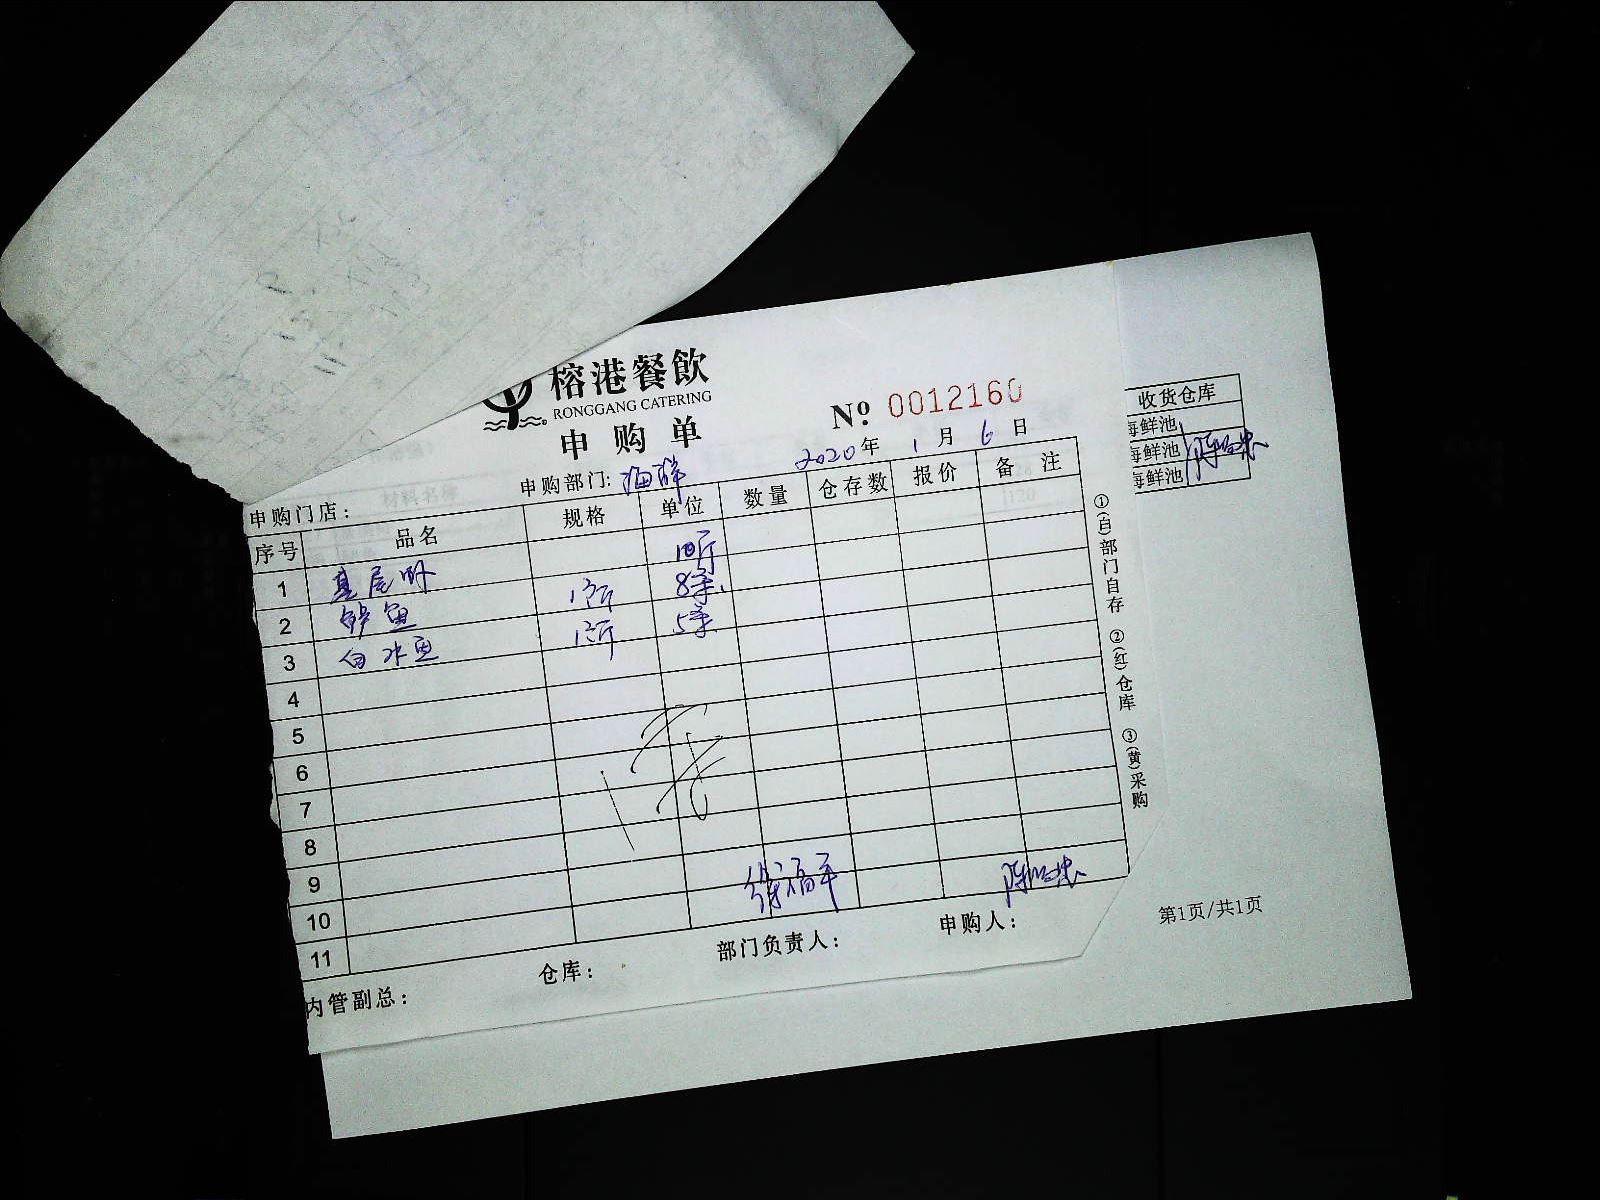 榕港餐飲
RONGGANG CATERING
申购单
№ 0012160
2020年 1月 6日
申购门店: 申购部门: 海鲜
序号 品名 规格 单位 数量 仓存数 报价 备注
1 基尾虾 10斤
2 鲈鱼 8条
3 白水鱼 5条
4
5
6
7
8
9
10
11
内管副总: 仓库: 部门负责人: 徐福平 申购人:
①(白)部门自存 ②(红)仓库 ③(黄)采购
收货仓库
海鲜池
海鲜池
海鲜池
第1页/共1页
材料名称